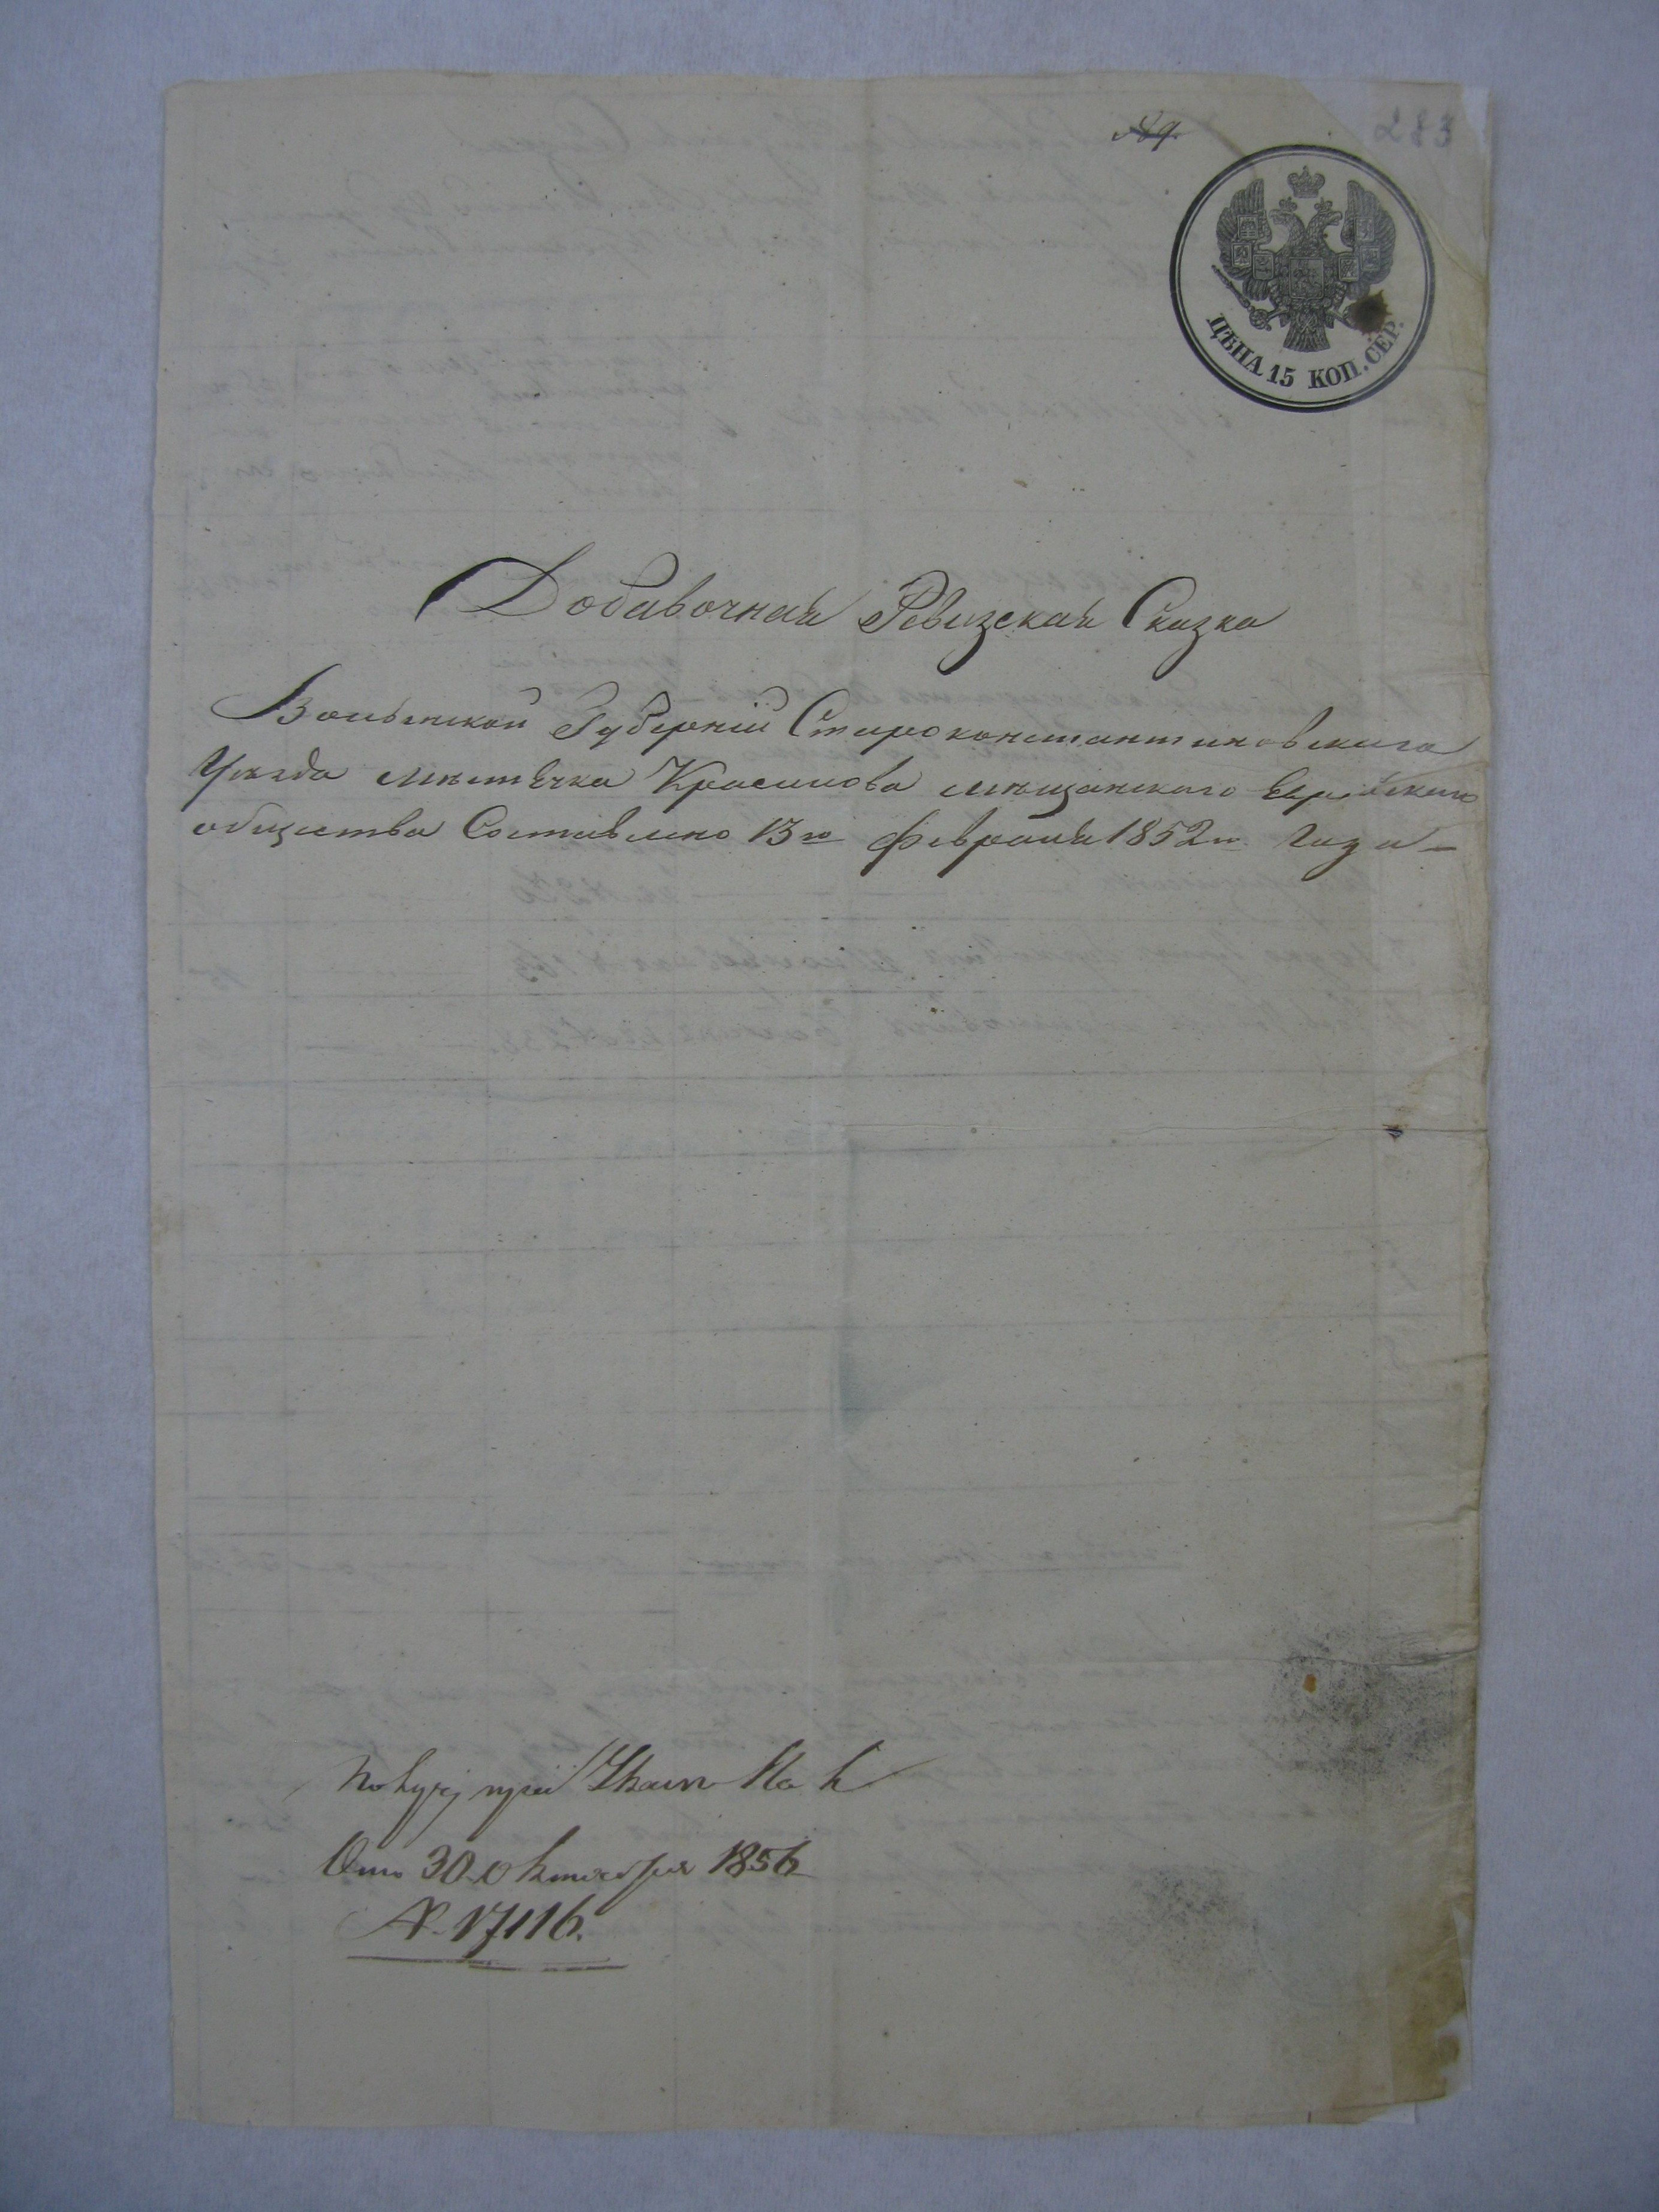 283
ЦѢНА 15 КОП. СЕР.
Добавочная Ревизская Сказка
Волынской Губерніи Староконстантиновскаго
Уѣзда мѣстечка Красилова мѣщанского Еврейского
общества Составлено 13го февраля 1852го Года —
От 30 октября 1856
№ 17116.